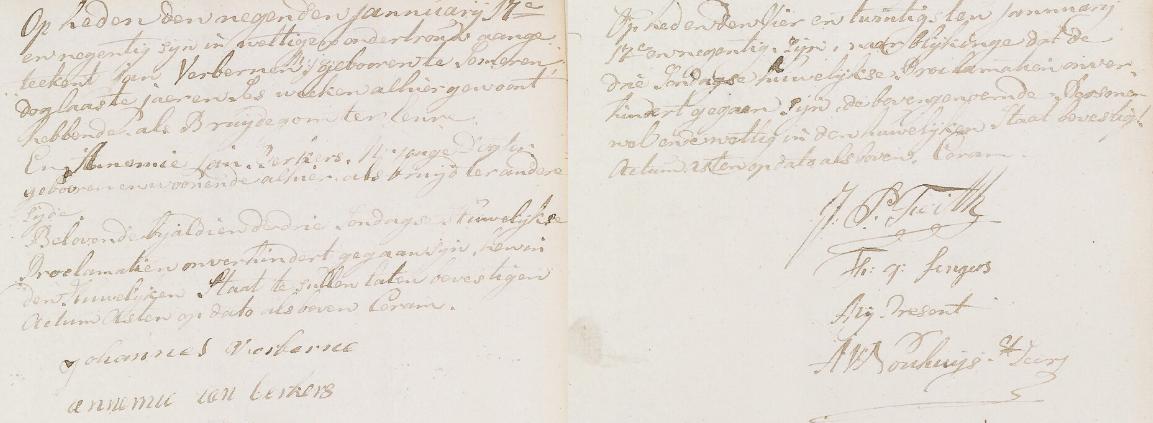 Op heden den negenden Jannuarij 17e
en negentig sijn in wettigen ondertrouw aange
teekent Jan Verberne, gebooren te Someren
dog laaste jaeren ses weeken alhier gewoont
hebbende als Bruydegom ter eenre
En Annemie Jan Berkers, jonge Dogter
gebooren en woonende alhier als bruijd ter andere
zyde
Belovende bijaldien de drie Sondagse Huwelijkse
Proclamatien onverhindert gegaan sijn, hun in
den Huwelijken Staat te sullen laten bevestigen
Actum Asten op dato als boven Coram.
Johannes Verberne
annemie ian berkers
Op heden den vier en twintigsten Jannuarij
17e en negentig sijn, naar blijkinge dat de
drie Sondagse Huwelijkse Proclamatien onver-
hindert gegaan sijn, de bovengenoemde Persoonen
wel ende wettig in den huwelijken Staat bevestigt
Actum Asten op dato als boven, Coram.
Th: q: Sengers
Mij Present